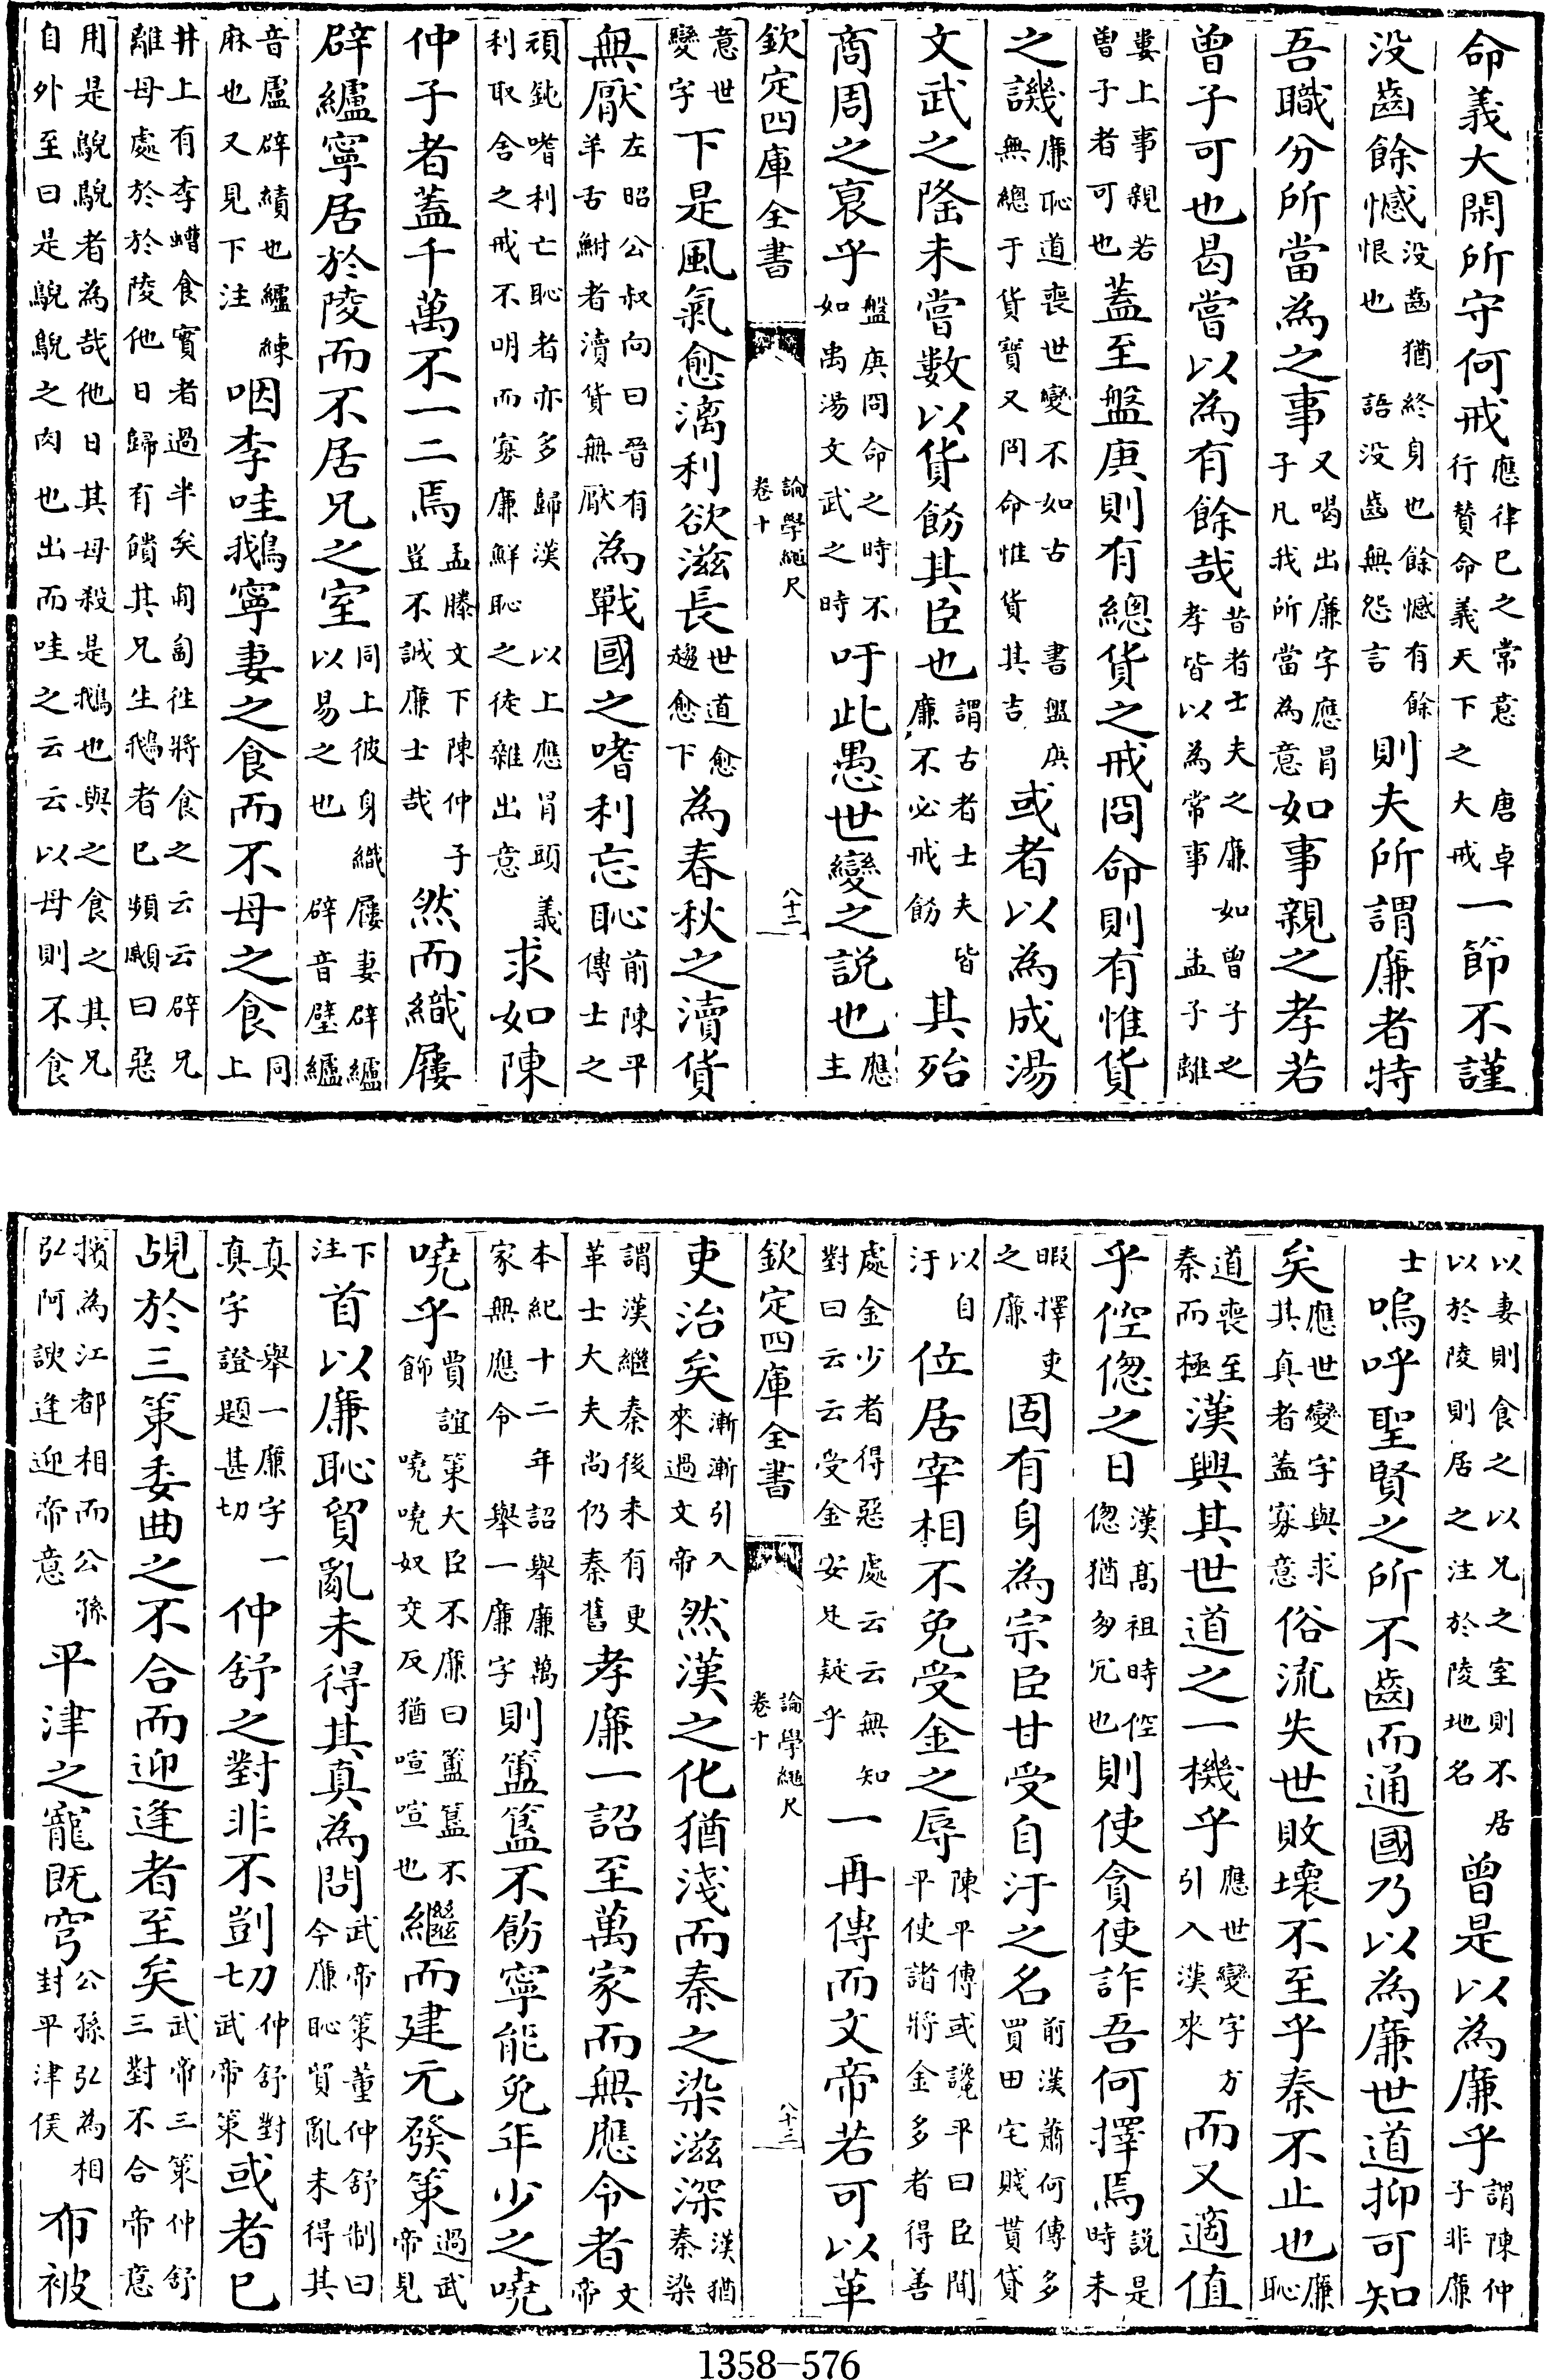 命義大閑所守何戒應律已之常意唐卓行賛命義天下之大戒一節不謹
没齒餘憾没齒猶終身也餘憾有餘恨也語没齒無怨言則夫所謂廉者特
吾職分所當為之事又喝出廉字應冐子凡我所當為意如事親之孝若
曾子可也曷嘗以為有餘哉昔者士夫之廉如曽子之孝皆以為常事孟子離
婁上事親若曽子者可也蓋至盤庚則有總貨之戒冏命則有惟貨
之譏廉恥道喪世變不如古書盤庚無總于貨寳又冏命惟貨其吉或者以為成湯
文武之隆未嘗數以貨飭其臣也謂古者士夫皆廉不必戒飭其殆
商周之衰乎盤庚冏命之時不如禹湯文武之時吁此愚世變之説也應主
欽定四庫全書 論學繩尺卷十 八十二
意世變字下是風氣愈漓利欲滋長世道愈趨愈下為春秋之瀆貨
無厭左昭公叔向曰晉有羊舌鮒者瀆貨無厭為戰國之嗜利忘恥前陳平傳士之
頑鈍嗜利亡恥者亦多歸漢以上應冐頭義利取舍之戒不明而寡廉鮮恥之徒雜出意求如陳
仲子者蓋千萬不一二焉孟滕文下陳仲子豈不誠廉士哉然而織屨
辟纑寧居於陵而不居兄之室同上彼身織屨妻辟纑以易之也辟音璧纑
音盧辟績也纑練麻也又見下注咽李哇鵝寧妻之食而不母之食同上
井上有李螬食實者過半矣匍匐往將食之云云辟兄離母處於於陵他日歸有饋其兄生鵝者已頻顣曰惡
用是鶃鶃者為哉他日其母殺是鵝也與之食之其兄自外至曰是鶃鶃之肉也出而哇之云云以母則不食
以妻則食之以兄之室則不居以於陵則居之注於陵地名曾是以為廉乎謂陳仲子非廉
士嗚呼聖賢之所不齒而通國乃以為廉世道抑可知
矣應世變字與求其真者蓋寡意俗流失世敗壞不至乎秦不止也廉恥
道喪至秦而極漢興其世道之一機乎應世變字方引入漢來而又適值
乎倥偬之日漢髙祖時倥偬猶匆冗也則使貪使詐吾何擇焉説是時未
暇擇吏之廉固有身為宗臣甘受自汙之名前漢蕭何傳多買田宅賤貰貸
以自汙位居宰相不免受金之辱陳平傳或讒平曰臣聞平使諸將金多者得善
處金少者得惡處云云無知對曰云云受金安足疑乎一再傳而文帝若可以革
欽定四庫全書 論學繩尺卷十 八十三
吏治矣漸漸引入來過文帝然漢之化猶淺而秦之染滋深漢猶秦染
謂漢繼秦後未有更革士大夫尚仍秦舊孝廉一詔至萬家而無應令者文帝
本紀十二年詔舉廉萬家無應令舉一廉字則簠簋不飭寧能免年少之嘵
嘵乎賈誼策大臣不廉曰簠簋不飾嘵嘵奴交反猶喧喧也繼而建元發策過武帝見
下注首以廉恥貿亂未得其真為問武帝策董仲舒制曰今廉恥貿亂未得其
真真字舉一廉字一證題甚切仲舒之對非不剴切仲舒對武帝策或者已
覘於三策委曲之不合而迎逢者至矣武帝三策仲舒三對不合帝意
擯為江都相而公孫弘阿諛逢迎帝意平津之寵既穹公孫弘為相封平津侯布被
1358-576